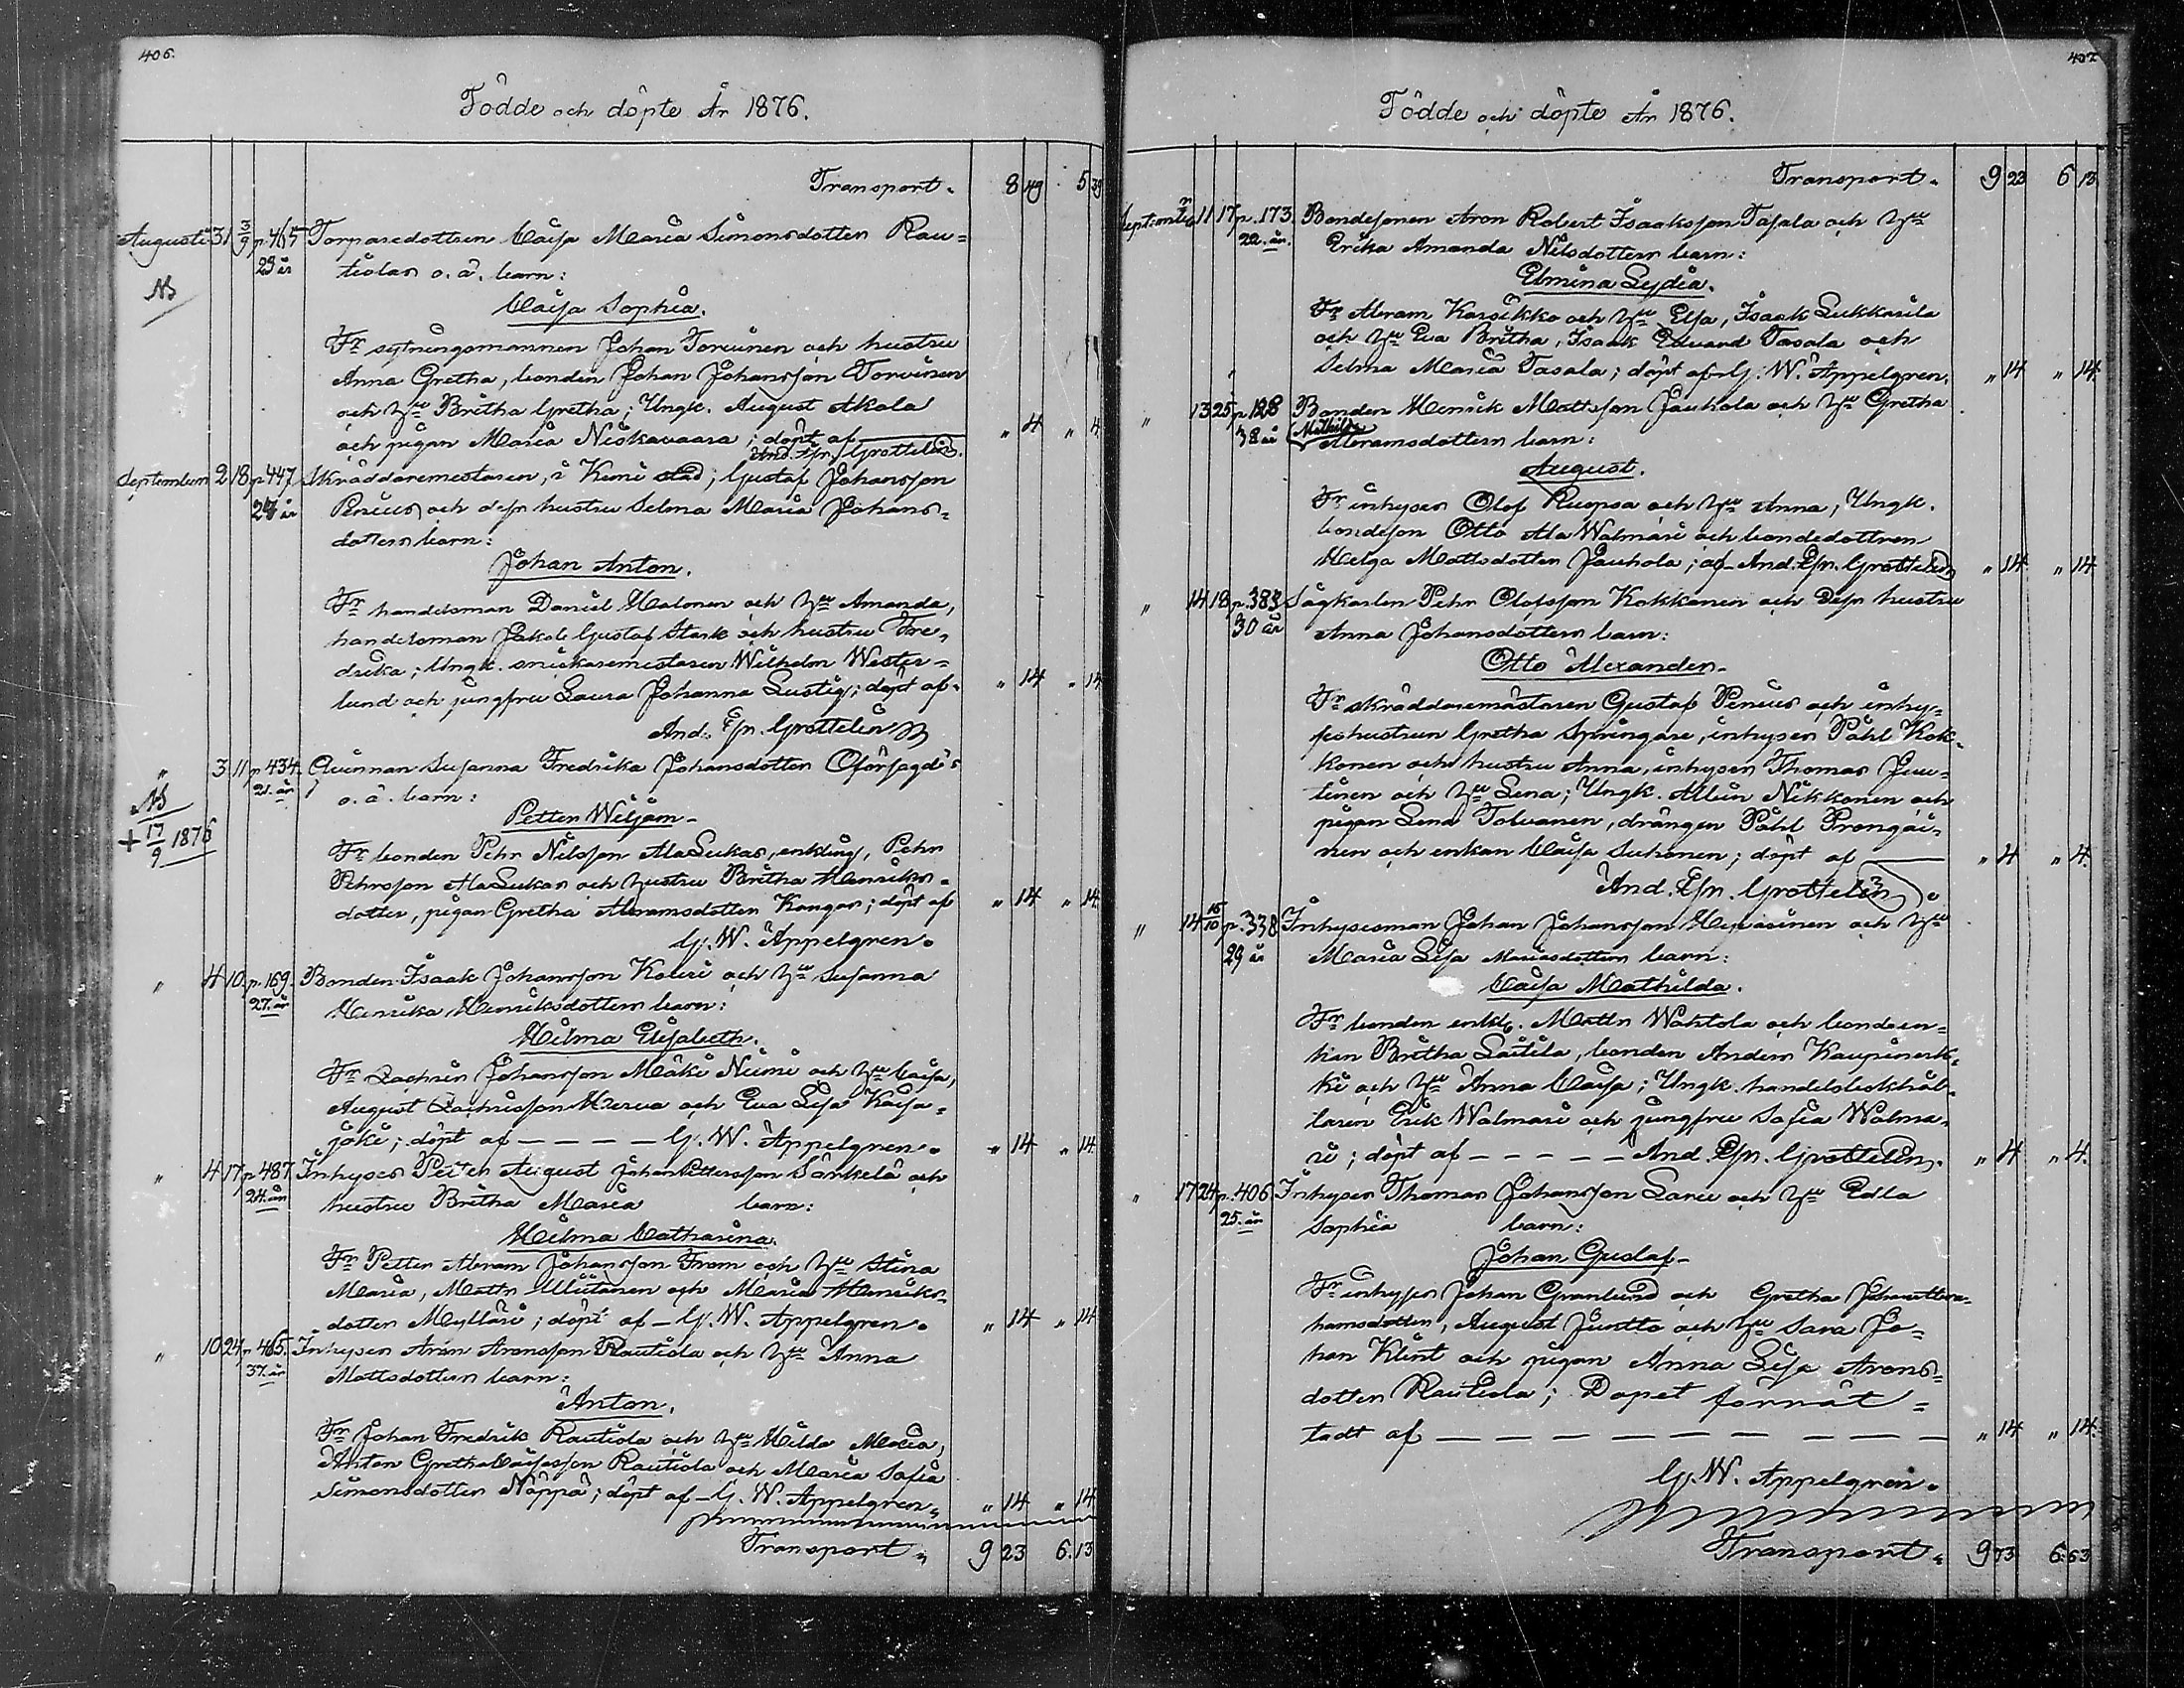 406.
Födde och döpte År 1876.
Transport. 8 49 5 39
Augusti 31 3/9 p. 465 Torparedottren Caisa Maria Simonsdotter Rau=
23 år tiolas o. ä. barn:
NB
Caisa Sophia.
Fr sytningsmannen Johan Torvinen och hustru
Anna Gretha, bonden Johan Johansson Torvinen
och hu Britha Gretha; Ungk. August Akola
och pigan Maria Niskavaara; döpt af " 4 " 4.
And. Joh. Grottelin.
September 2 18 p 447 Skräddaremestaren, i Kemi stad, Gustaf Johansson
år Penius och dess hustru Selma Maria Johans=
dotters barn:
Johan Anton.
Fr handelsman Daniel Malonen och hu Amanda,
handelsman Jakob Gustaf Stark och hustru Fre=
drika; Ungk. snickaremestaren Wilhelm Wester=
lund och jungfru Laura Johanna Lustig; döpt af. " 14 " 14
And. Joh. Grottelin
" 3 11 p 434. Qvinnan Susanna Fredrika Johansdotter Oförsagd's
21. år o. ä. barn:
NB
Petter Wiljam.
+ 17/9 1876
Fr bonden Pehr Nilsson AlaLukas, enkling, Pehr
Pehrsson AlaLukas och hustru Britha Henriks=
dotter, pigan Gretha Abramsdotter Kangas; döpt af " 14 " 14.
G. W. Appelgren.
" 4 10 p. 169. Bonden Isaak Johansson Koivi och hu Susanna
27. år Henrika Henriksdotters barn:
Hilma Elisabeth.
Fr Zachris Johansson Mäki Niemi och hu Caisa,
August Zachrisson Merva och Eva Lisa Kaisa=
joki; döpt af — — — — G. W. Appelgren. " 14 " 14.
" 4 17 p 487 Inhyses Petter August Johan Pettersson Särkelä och
24. år hustru Britha Maria barn:
Hilma Catharina.
Fr Petter Abram Johansson From och hu Stina
Maria, Matts Miitanen och Maria Henriks=
dotter Myllari; döpt af — G. W. Appelgren. " 14 " 14
" 10 24 p 465. Inhyses Aron Aronsson Rautiola och hu Anna
37. år Mattsdotters barn:
Anton.
Fr Johan Fredrik Rautiola och hu Hilda Maria,
Anton Gretha Caisasson Rautiola och Maria Sofia
Simonsdotter Näppä; döpt af — G. W. Appelgren. " 14 " 14
Transport. 9 23 6. 13
407
Födde och döpte År 1876.
Transport. 9 23 6 13
September 11 17 p. 173. Bondesonen Aron Robert Isaaksson Tasala och hu
22. år. Erika Amanda Nilsdotters barn:
Elmina Lydia.
Fr Abram Karsikko och hu Elsa, Isaak Lukkarila
och hu Eva Britha, Isaak Eduard Tasala och
Selma Maria Tasala; döpt af G. W. Appelgren. " 14 " 14.
" 13 25 p. 128 Bonden Henrik Mattsson Jauhola och hu Gretha
38 år Mathilda Abramsdotters barn:
August.
Fr inhyses Olof Ruopsa och hu Anna, Ungk.
bondeson Otto Ala Walmari och bondedottren
Helga Mattsdotter Jauhola; af And. Joh. Grottelin " 14 " 14
" 14 18 p. 383 Sågkarlen Pehr Olofsson Kokkonen och dess hustru
30 år Anna Johansdotters barn:
Otto Alexander.
Fr skräddaremästaren Gustaf Penius och inhy=
seshustrun Gretha Springare, inhyses Påhl Kok=
konen och hustru Anna, inhyses Thomas Juu=
tinen och hu Lena; Ungk. Albin Nikkonen och
pigan Lena Tolvanen, drängen Påhl Prongäi=
nen och enkan Caisa Suhonen; döpt af — " 4 " 4.
And. Joh. Grottelin.
" 14 15/10 p. 338 Inhysesman Johan Johansson Heinänen och hu
29 år Maria Lisa Mariasdotters barn:
Caisa Mathilda.
Fr bonden enkl. Matts Wahtola och bondeen=
kan Britha Laitila, bonden Anders Kaupinerk=
ki och hu Anna Caisa; Ungk. handelsbokhål=
laren Erik Walmari och jungfru Sofia Walma=
ri; döpt af — — — — — And. Joh. Grottelin. " 4 " 4.
" 17 24 p. 406. Inhyses Thomas Johansson Laru och hu Edla
25. år Sophia barn:
Johan Gustaf.
Fr inhyses Johan Granlund och Gretha
hansdotter, August Juntto och hu Sara Jo=
han Klint och pigan Anna Lisa Arons=
dotter Rautiola; Dopet förrät=
tadt af — — — — — — — — — " 14 " 14.
G. W. Appelgren.
Transport. 9 73 6. 63